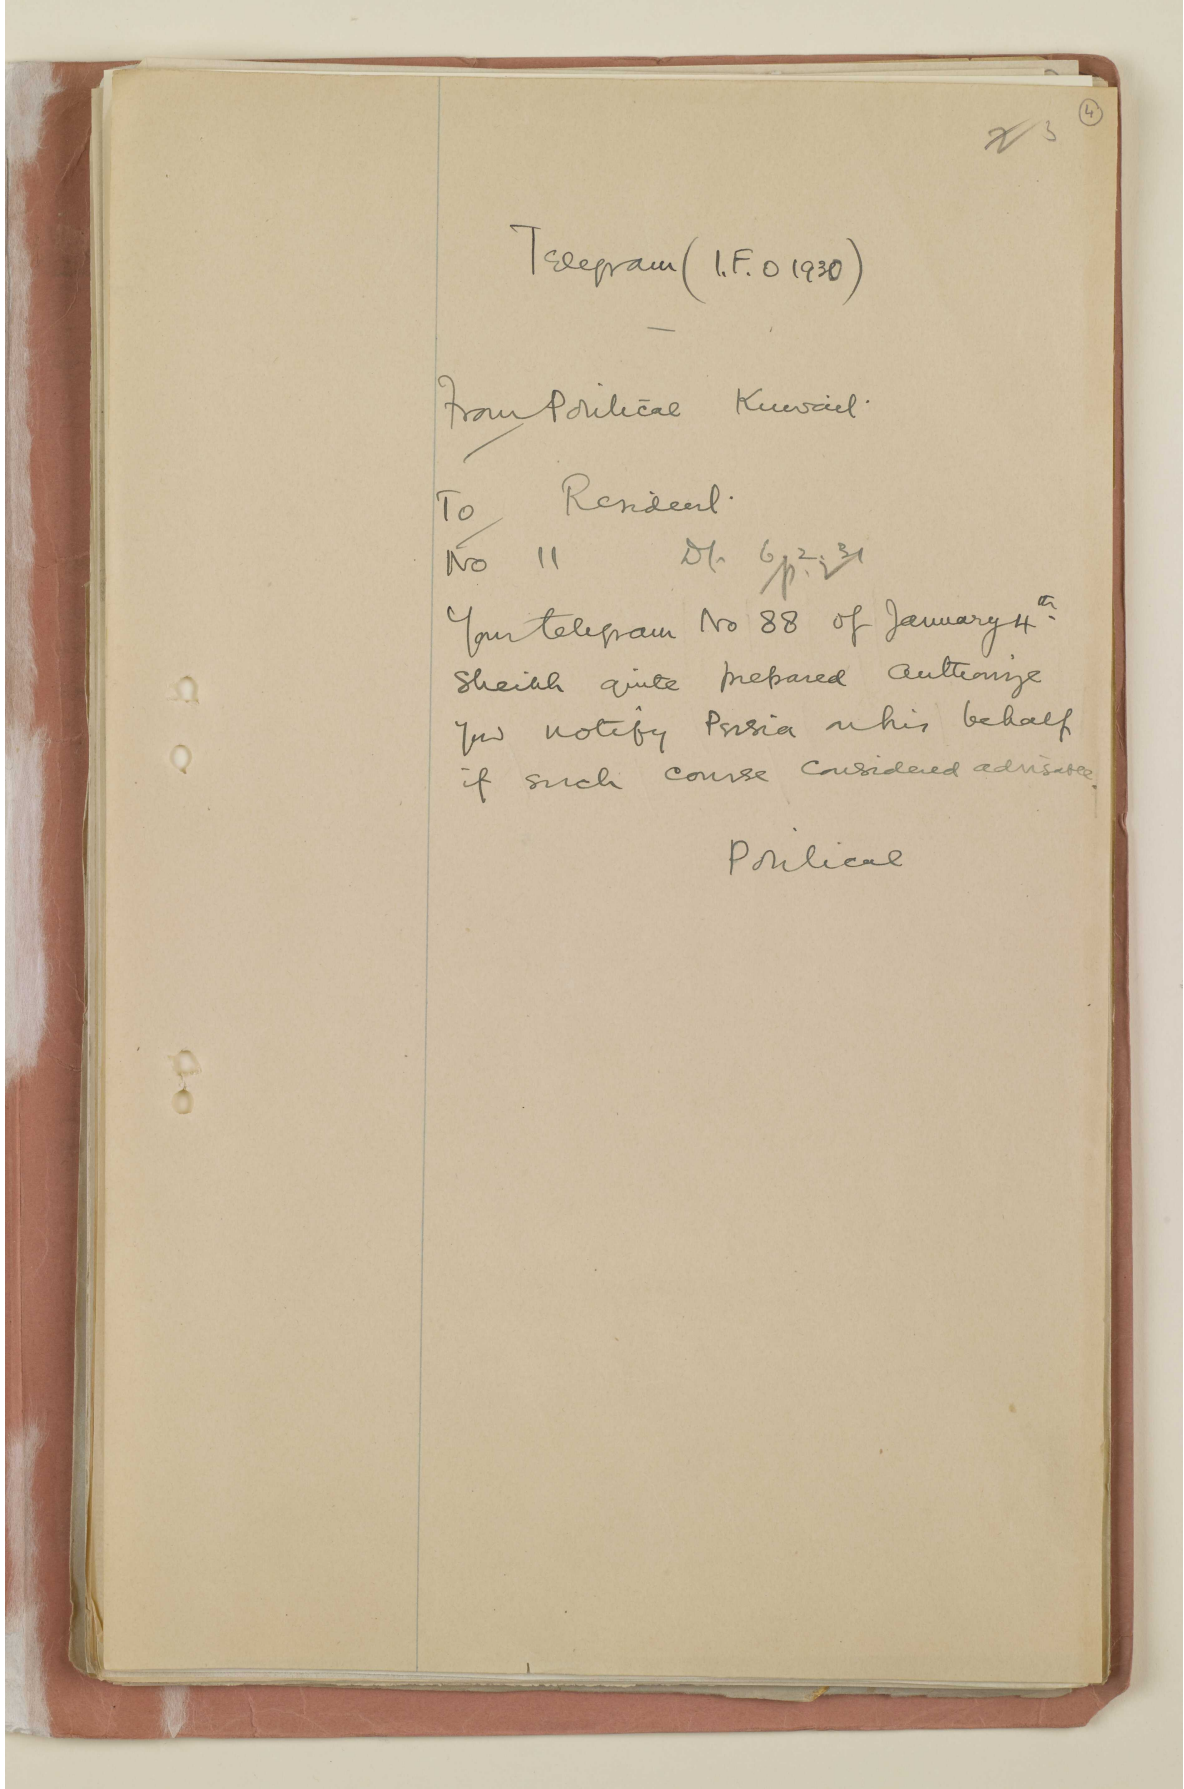 4
3
Telegram (I.F.O 1930)
From Political Kuwait.
To Resident.
No 11 Dt. 6.2.31
Your telegram No 88 of January 4th.
Sheikh quite prepared authorize
you notify Persia on his behalf
if such course considered advisable.
Political